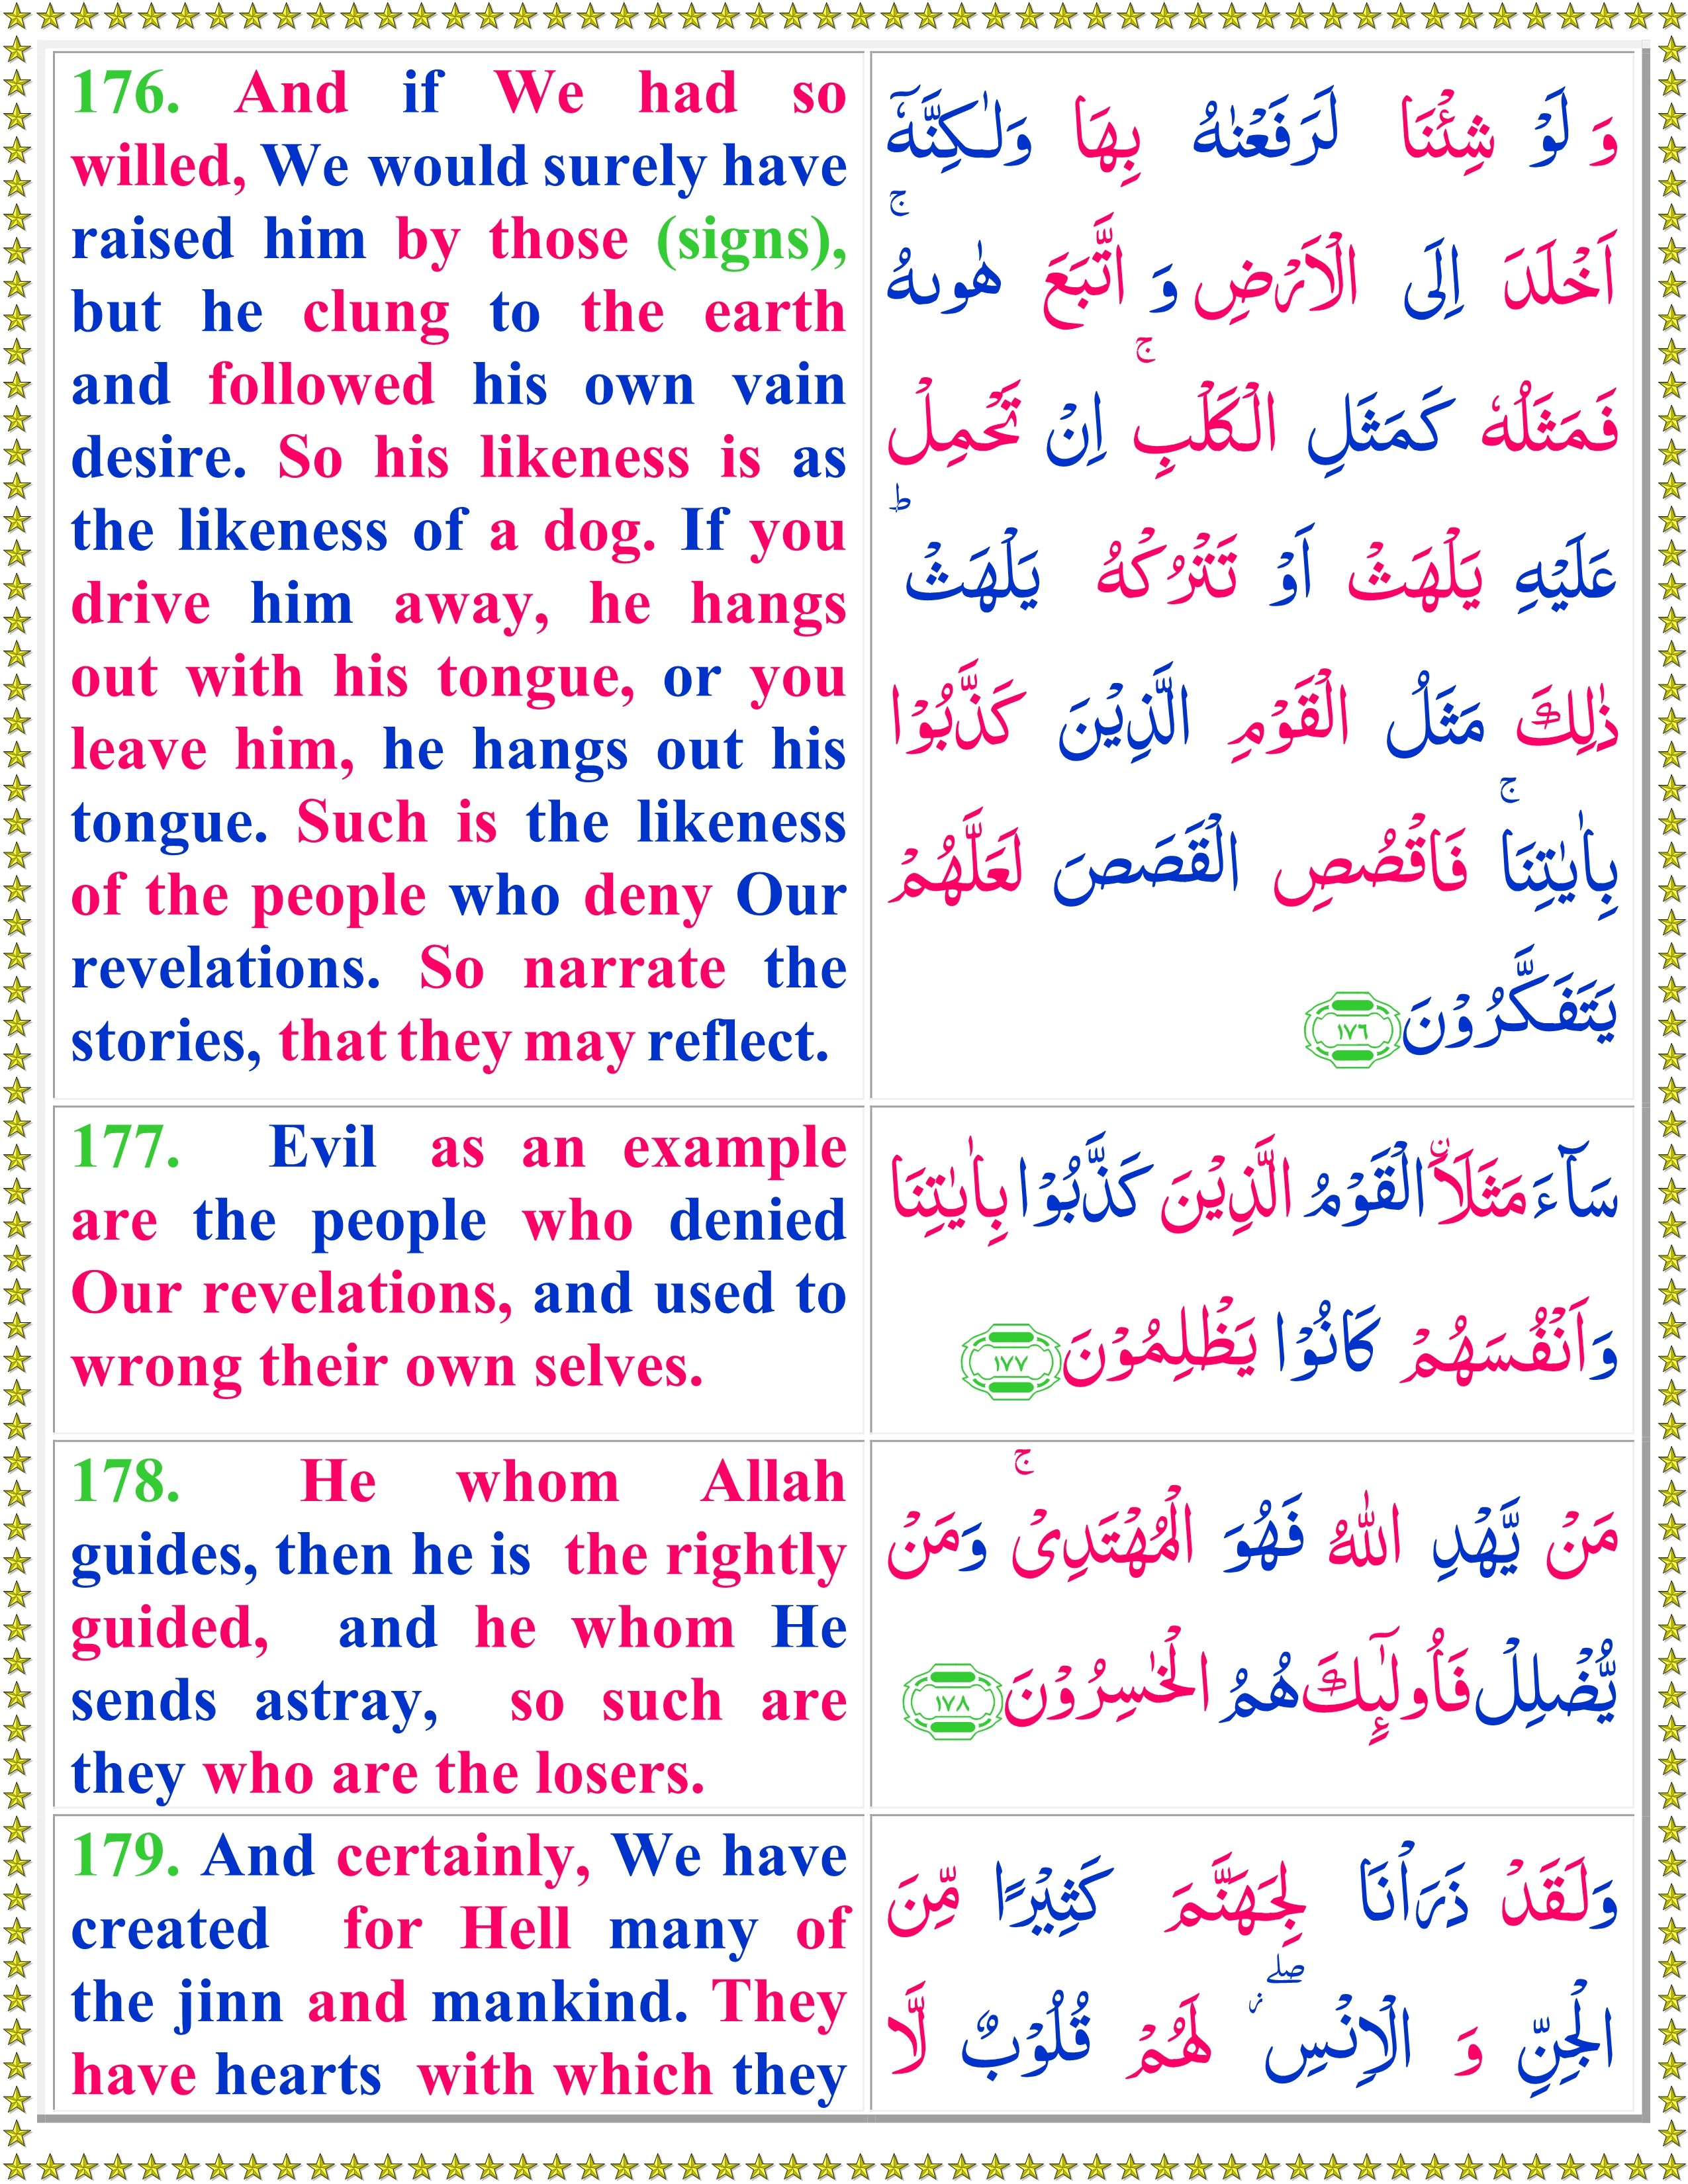 176. And if We had so
willed, We would surely have
raised him by those (signs),
but he clung to the earth
and followed his own vain
desire. So his likeness is as
the likeness of a dog. If you
drive him away, he hangs
out with his tongue, or you
leave him, he hangs out his
tongue. Such is the likeness
of the people who deny Our
revelations. So narrate the
stories, that they may reflect.
وَ لَوْ شِئْنَا لَرَفَعْنٰهُ بِهَا وَلٰـكِنَّهٗۤ
اَخْلَدَ اِلَى الْاَرْضِ وَ اتَّبَعَ هٰوٮهُ‌ ۚ
فَمَثَلُهٗ كَمَثَلِ الْكَلْبِ‌ ۚ اِنْ تَحْمِلْ
عَلَيْهِ يَلْهَثْ اَوْ تَتْرُكْهُ يَلْهَثْ ؕ
ذٰ لِكَ مَثَلُ الْقَوْمِ الَّذِيْنَ كَذَّبُوْا
بِاٰيٰتِنَا‌ ۚ فَاقْصُصِ الْقَصَصَ لَعَلَّهُمْ
يَتَفَكَّرُوْنَ ١٧٦
177. Evil as an example
are the people who denied
Our revelations, and used to
wrong their own selves.
سَآءَ مَثَلَاْ ۨالْقَوْمُ الَّذِيْنَ كَذَّبُوْا بِاٰيٰتِنَا
وَاَنْفُسَهُمْ كَانُوْا يَظْلِمُوْنَ ١٧٧
178. He whom Allah
guides, then he is the rightly
guided, and he whom He
sends astray, so such are
they who are the losers.
مَنْ يَّهْدِ اللّٰهُ فَهُوَ الْمُهْتَدِىْ‌ ۚ وَمَنْ
يُّضْلِلْ فَاُولٰۤٮِٕكَ هُمُ الْخٰسِرُوْنَ ١٧٨
179. And certainly, We have
created for Hell many of
the jinn and mankind. They
have hearts with which they
وَلَـقَدْ ذَرَاْنَا لِجَـهَنَّمَ كَثِيْرًا مِّنَ
الْجِنِّ وَ الْاِنْسِ‌ ‌ۖ لَهُمْ قُلُوْبٌ لَّا